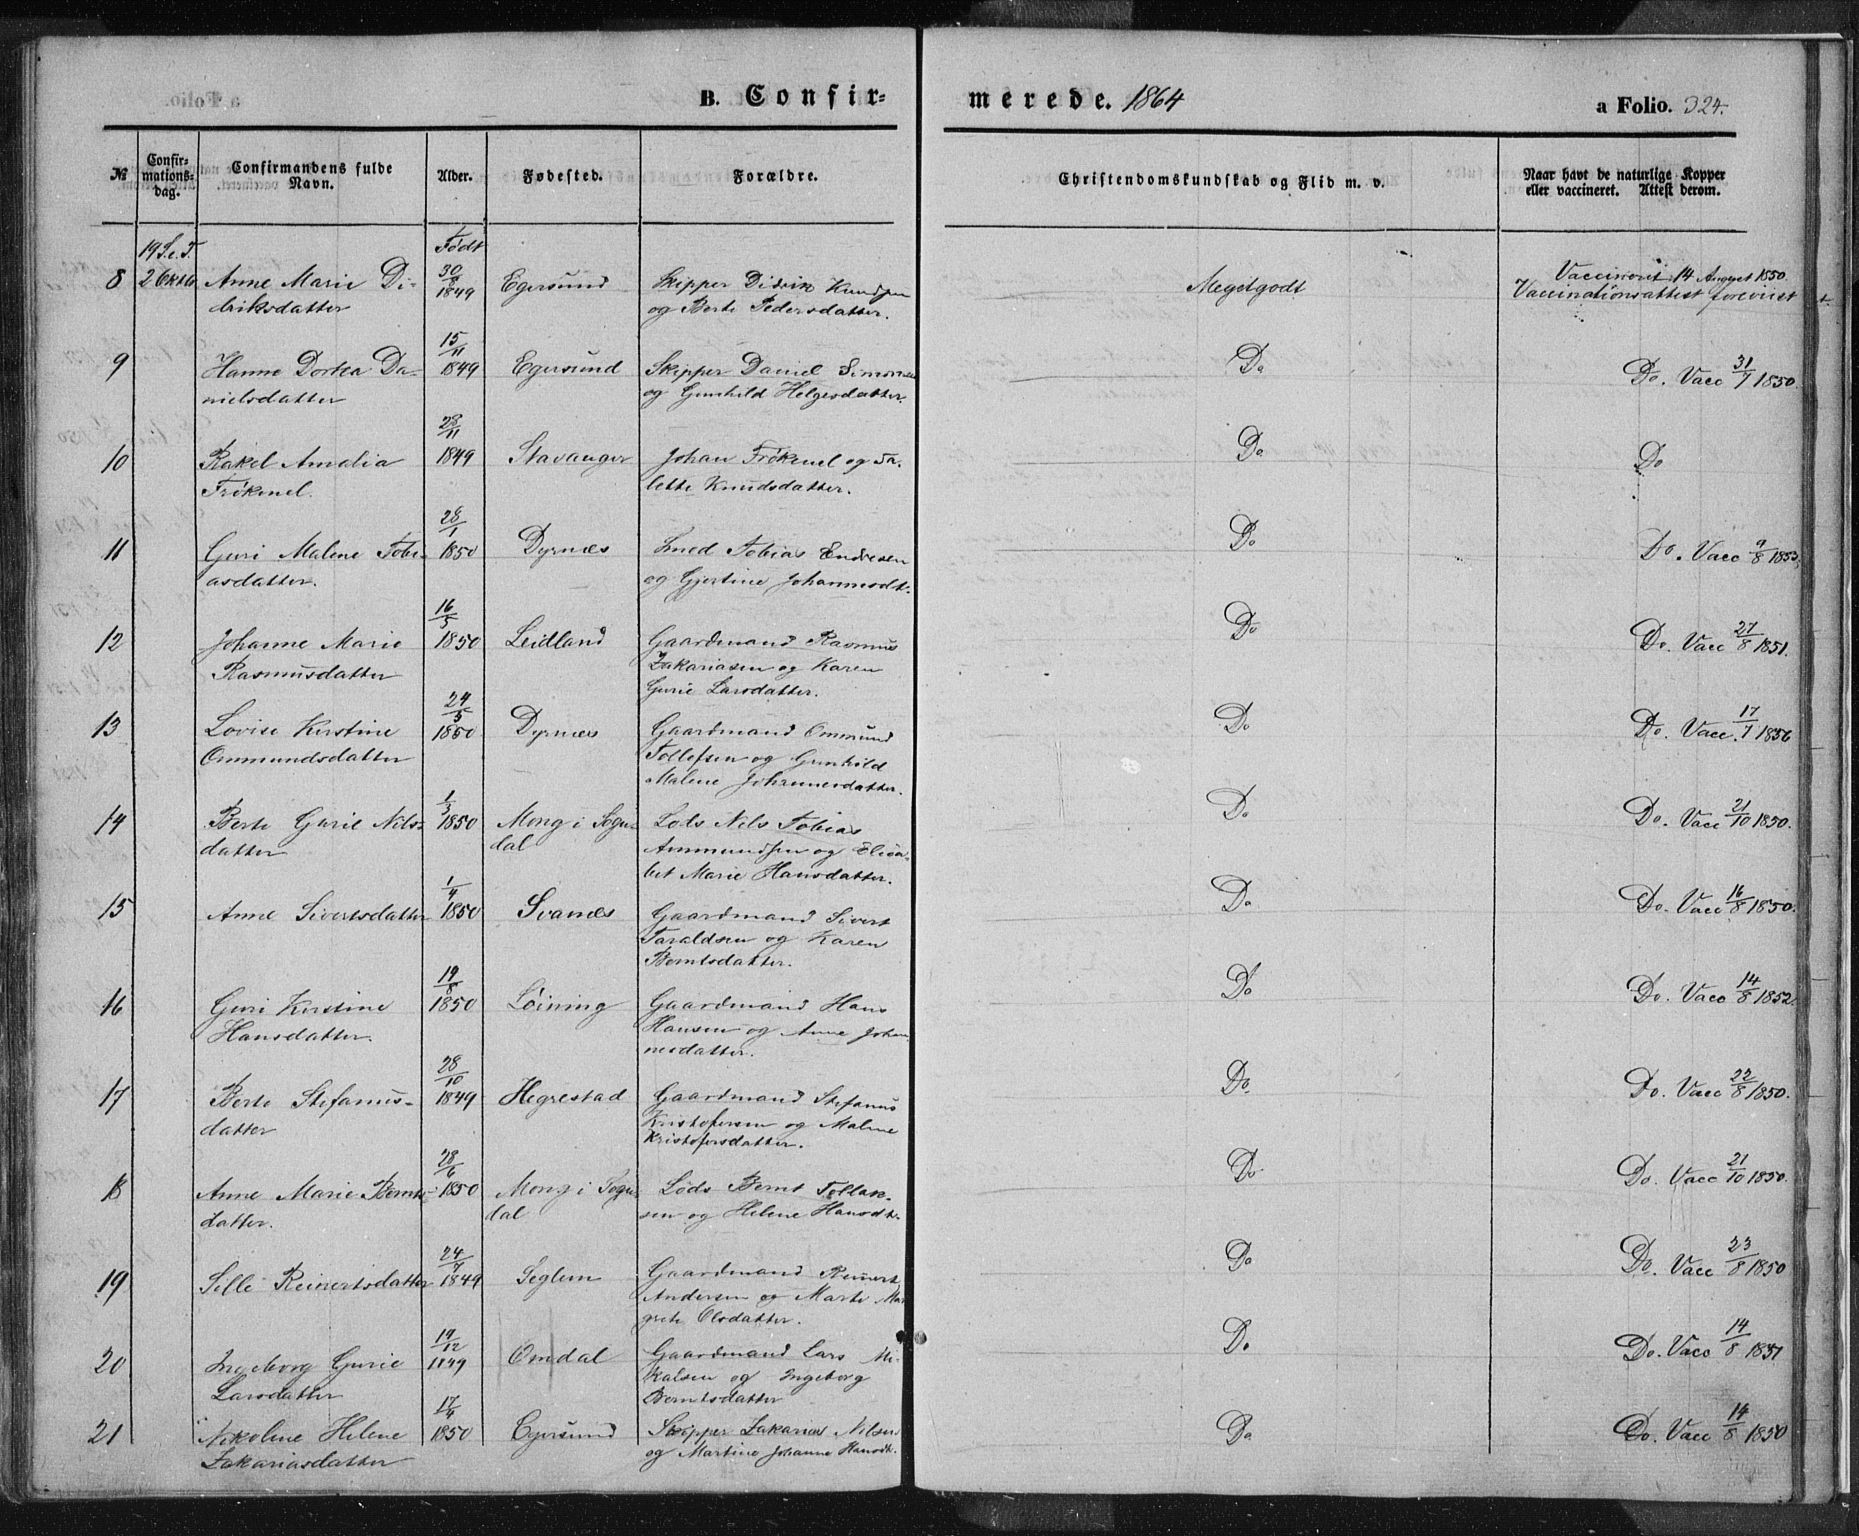 B. Confirmerede. 1864
a Folio. 324.
№
Confirmationsdag.
Confirmandens fulde Navn.
Alder.
Fødested.
Forældre.
Christendomskundskab og Flid m. v.
Naar havt de naturlige Kopper eller vaccineret. Attest derom.
19 S. e. T.
Født
8 2 Oktb Anne Marie Di- 30/8 1849 Egersund Skipper Didrik Knudsen Megetgodt Vaccineret 14 August 1850.
driksdatter og Berte Pedersdatter. Vaccinationsattest foreviist
9 Hanne Dortea Da- 15/11 1849 Egersund Skipper Daniel Simonsen Do Do. Vacc 31/7 1850.
nielsdatter og Gunhild Helgesdatter.
10 Rakel Amalia 23/11 1849 Stavanger Johan Frökenel og Ta- Do Do
Frökenel. lette Knudsdatter.
11 Guri Malene Tobi- 28/1 1850 Dyrnæs Smed Tobias Endresen Do Do. Vacc 9/8 1853.
asdatter. og Gjertine Johannesdt.
12 Johanne Marie 16/5 1850 Leidland Gaardmand Rasmus Do Do. Vacc 27/8 1851.
Rasmusdatter Zakariasen og Karen
Gurie Larsdatter.
13 Lovise Kirstine 24/5 1850 Dyrnæs Gaardmand Ommund Do Do. Vacc. 17/7 1856
Ommundsdatter Tollefsen og Gunhild
Malene Johannesdatter.
14 Berte Gurie Nils- 1/3 1850 Mong i Sogn- Lods Nils Tobias Do Do. Vacc 21/10 1850.
datter dal Ammundsen og Elisa-
bet Marie Hansdatter.
15 Anne Sivertsdatter 1/4 1850 Svanæs Gaardmand Sivert Do Do. Vacc 16/8 1850.
Taraldsen og Karen
Berntsdatter.
16 Guri Kirstine 19/8 1850 Löining Gaardmand Hans Do Do. Vacc 14/8 1852.
Hansdatter. Hansen og Anne Johan
nesdatter.
17 Berte Stefanus- 28/10 1849 Hegrestad Gaardmand Stefanus Do. Do. Vacc 22/8 1850.
datter Kristofersen og Malene
Kristofersdatter.
18 Anne Marie Bernts- 28/6 1850 Mong i Sogn- Lods Bernt Tollak- Do Do. Vacc 21/10 1850.
datter. dal sen og Helene Hansdt.
19 Sille Reinertsdatter 24/7 1849 Seglem Gaardmand Reinert Do Do. Vacc 23/8 1850
Andersen og Marte Mar
grete Olsdatter.
20 Ingeborg Gurie 19/12 1849 Omdal Gaardmand Lars Mi- Do Do. Vacc 14/8 1851
Larsdatter kalsen og Ingeborg
Berntsdatter
21 Nikoline Helene 17/4 1850 Egersund Skipper Zakarias Nilsen Do Do. Vacc 14/8 1850
Zakariasdatter og Martine Johanne Hansdt.